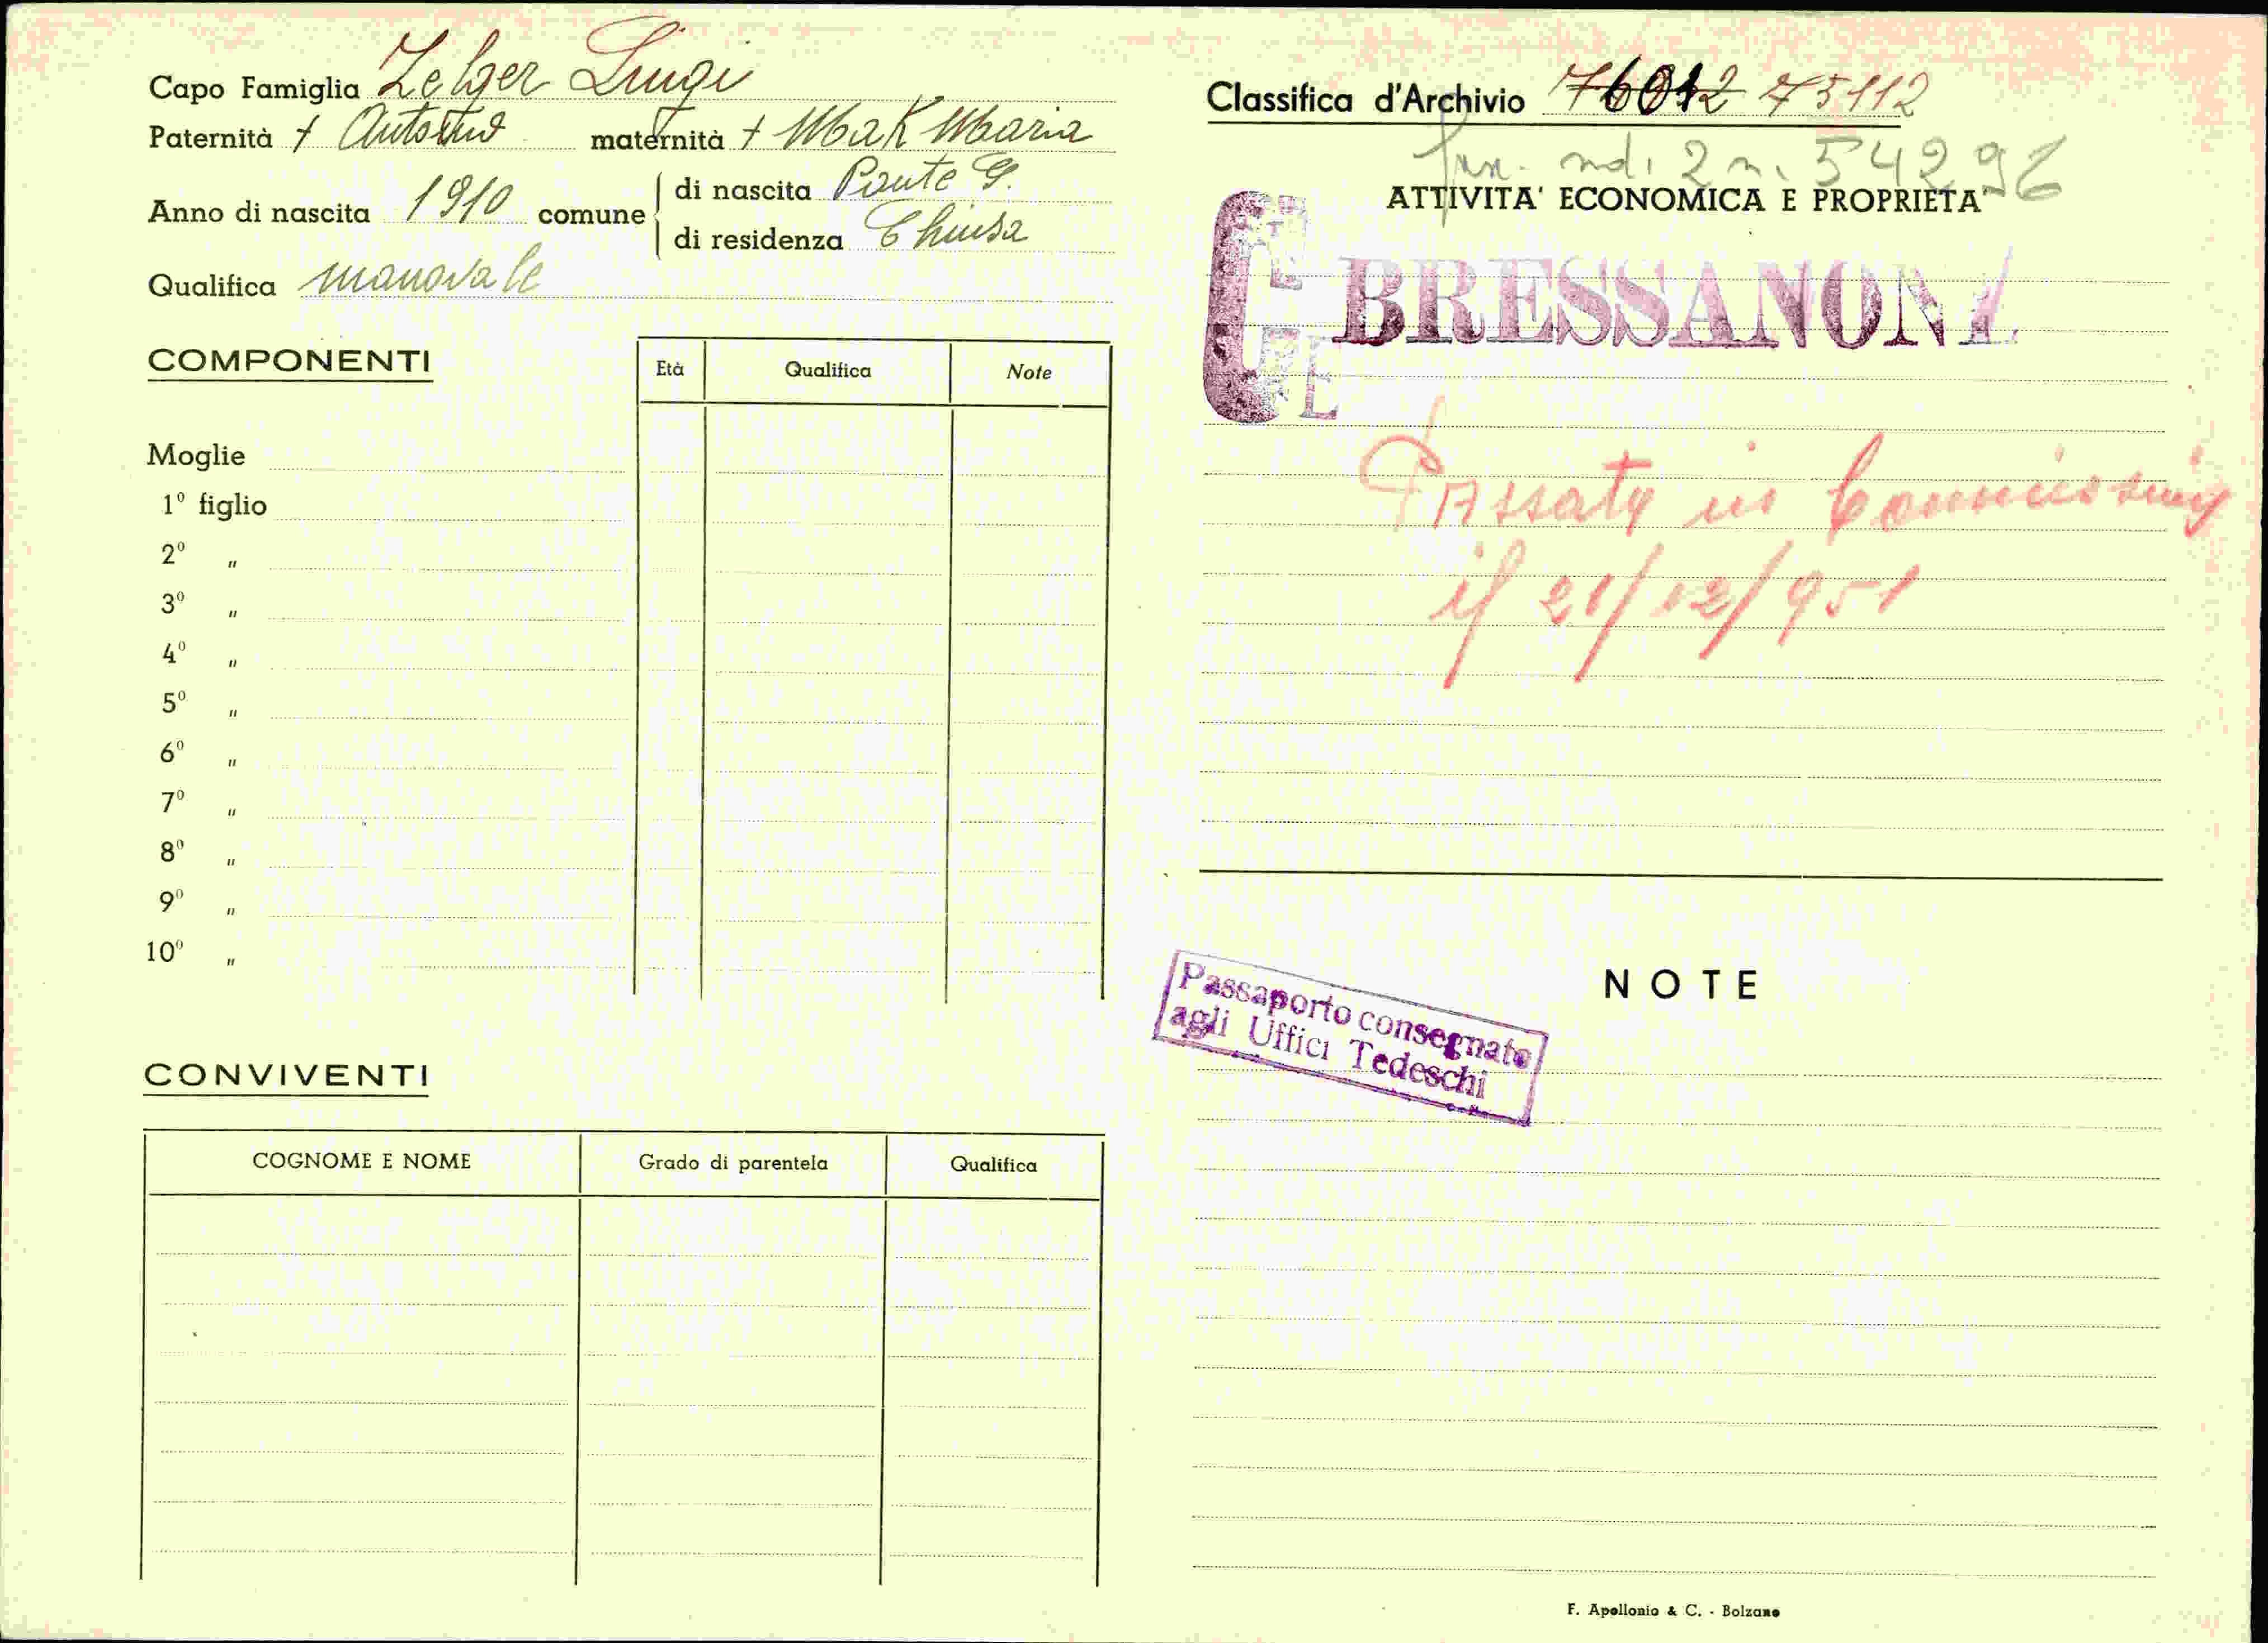 Capo Famiglia Zelger Luigi
Paternità + Antonio maternità + Mak Maria
Anno di nascita 1910 comune di nascita Ponte G.
di residenza Chiusa
Qualifica manovale
COMPONENTI
Età Qualifica Note
Moglie
1° figlio
2° "
3° "
4° "
5° "
6° "
7° "
8° "
9° "
10° "
CONVIVENTI
COGNOME E NOME Grado di parentela Qualifica
Classifica d'Archivio 76012 75112
2 n. 54296
ATTIVITA' ECONOMICA E PROPRIETA'
BRESSANON
Passato in Commissione
il 21/12/951
NOTE
Passaporto consegnato
agli Uffici Tedeschi
F. Apollonio & C. - Bolzano